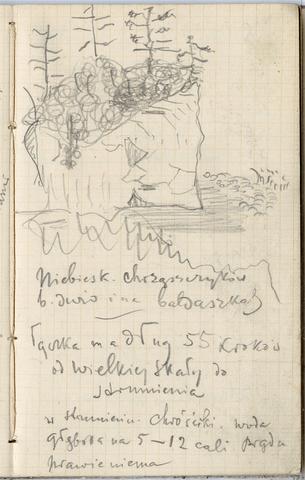 Niebiesk. chrząszczyków
b. dużo i na baldaszkach
Łączka ma dług 55 kroków
od wielkiej skały do
strumienia
w strumieniu. Chróściki. woda
głęboka na 5–12 cali prądu
prawie niema